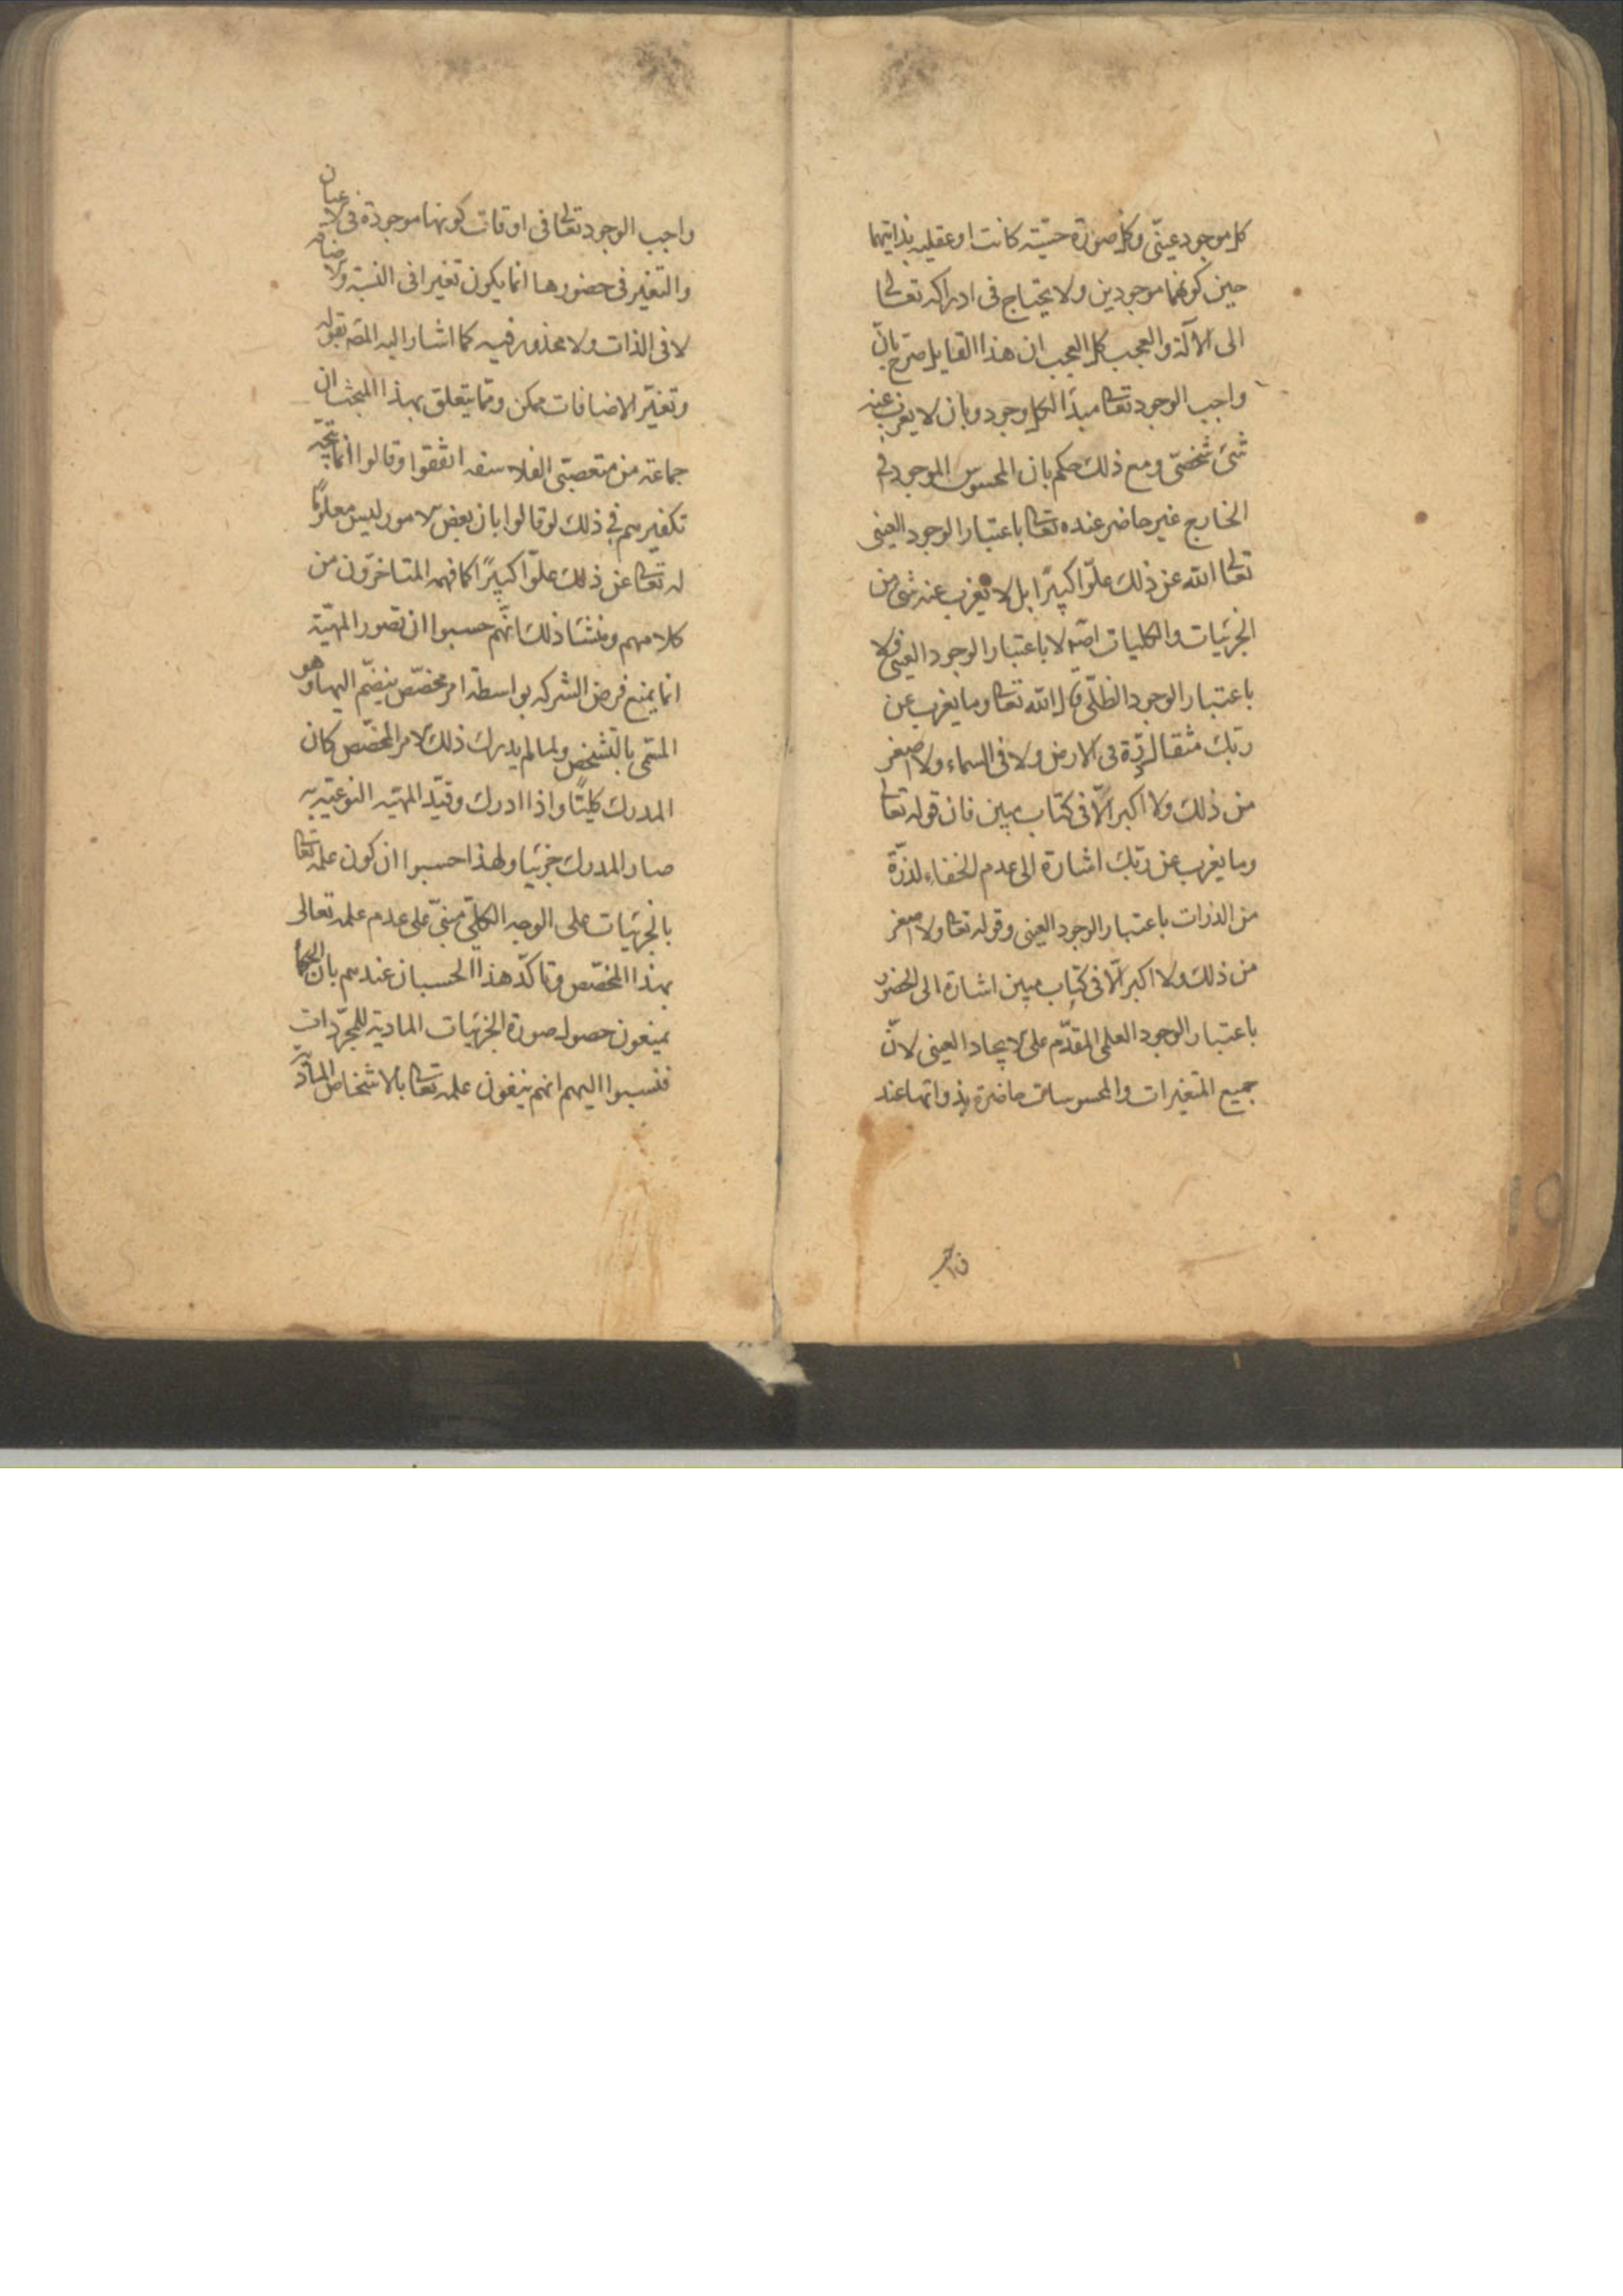 كل موجود عينىّ وكل صورة حسّيّة كانت او عقليه بذاتيهما
حين كونهما موجودين ولا يحتاج فى ادراكه تعالى
الى الآلة والعجب كل العجب ان هذا القايل صرّح بانّ
واجب الوجود تعالى مبدأ لكل وجود وبان لا يعزب عنه
شئ شخصّى ومع ذلك حكم بان المحسوس الموجود فى
الخارج غير حاضر عنده تعالى باعتبار الوجود العينى
تعالى الله عن ذلك علوّا كبيرًا بل لا يعزب عنه شئ من
الجزئيات والكليات لا باعتبار الوجود العينى ولا
باعتبار الوجود الظلّى قال الله تعالى وما يعزب عن
ربّك مثقال ذرّة فى الارض ولا فى السماء ولا اصغر
من ذلك ولا اكبر الّا فى كتاب مبين فان قوله تعالى
وما يعزب عن ربّك اشارة الى عدم الخفاء لذرّة
من الذرات باعتبار الوجود العينى وقوله تعالى ولا اصغر
من ذلك ولا اكبر الّا فى كتاب مبين اشارة الى الحضور
باعتبار الوجود العلمى المقدّم على الايجاد العينى لانّ
جميع المتغيرات والمحسوسات حاضرة بذواتها عند
واجب الوجود تعالى فى اوقات كونها موجودة فى الاعيان
والتغير فى حضورها انما يكون تغيرا فى النسبة والاضافة
لا فى الذات ولا محذور فيه كما اشار اليه المصـ بقوله
وتغيّر الاضافات ممكن وممّا يتعلق بهذا المبحث ان
جماعة من متعصبّى الفلاسفه اتفقوا وقالوا انّما يتجّه
تكفيرهم فى ذلك لو قالوا بان بعض الامور ليس معلومًا
له تعالى عن ذلك علوّا كبيرًا كما فهمه المتاخرّون من
كلامهم ومنشأ ذلك انّهم حسبوا ان تصور المهيّة
انما يمنع فرض الشركه بواسطة امر مخصّص ينضمّ اليها وهو
المسمّى بالتشخّص ولما لم يدرك ذلك الامر المخصّص كان
المدرك كليًّا واذا ادرك وقيّد المهيّه النوعيّه به
صار المدرك جزئيا ولهذا حسبوا ان كون علمه تعالى
بالجزئيات على الوجه الكلّىّ مبنىّ على عدم علمه تعالى
بهذا المخصّص وتاكّد هذا الحسبان عندهم بان الحكما
يمنعون حصول صورة الجزئيات الماديّة للمجرّدات
فنسبوا اليهم انهم ينفون علمه تعالى بالاشخاص الماديّة